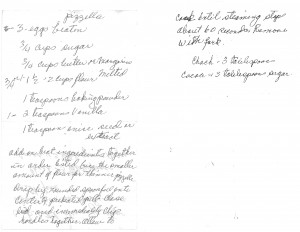 pizzella
3 - eggs beaten
3/4 cups sugar
3/4 cups butter or margarine
melted
1 1/2 - 2 cups flour
2 teaspoons baking powder
3 teaspoons vanilla
1 teaspoon anise seed or
extract
add ingredients together
in order listed (use the smaller
amount of flour for thinner pizzelle
drop by rounded spoonful onto
center of preheated grill. close
lid and immediately clip
handles together. allow to
cook until steaming stops
about 60 seconds. Remove
with fork.
3 tablespoons
Cocoa - 3 tablespoons sugar